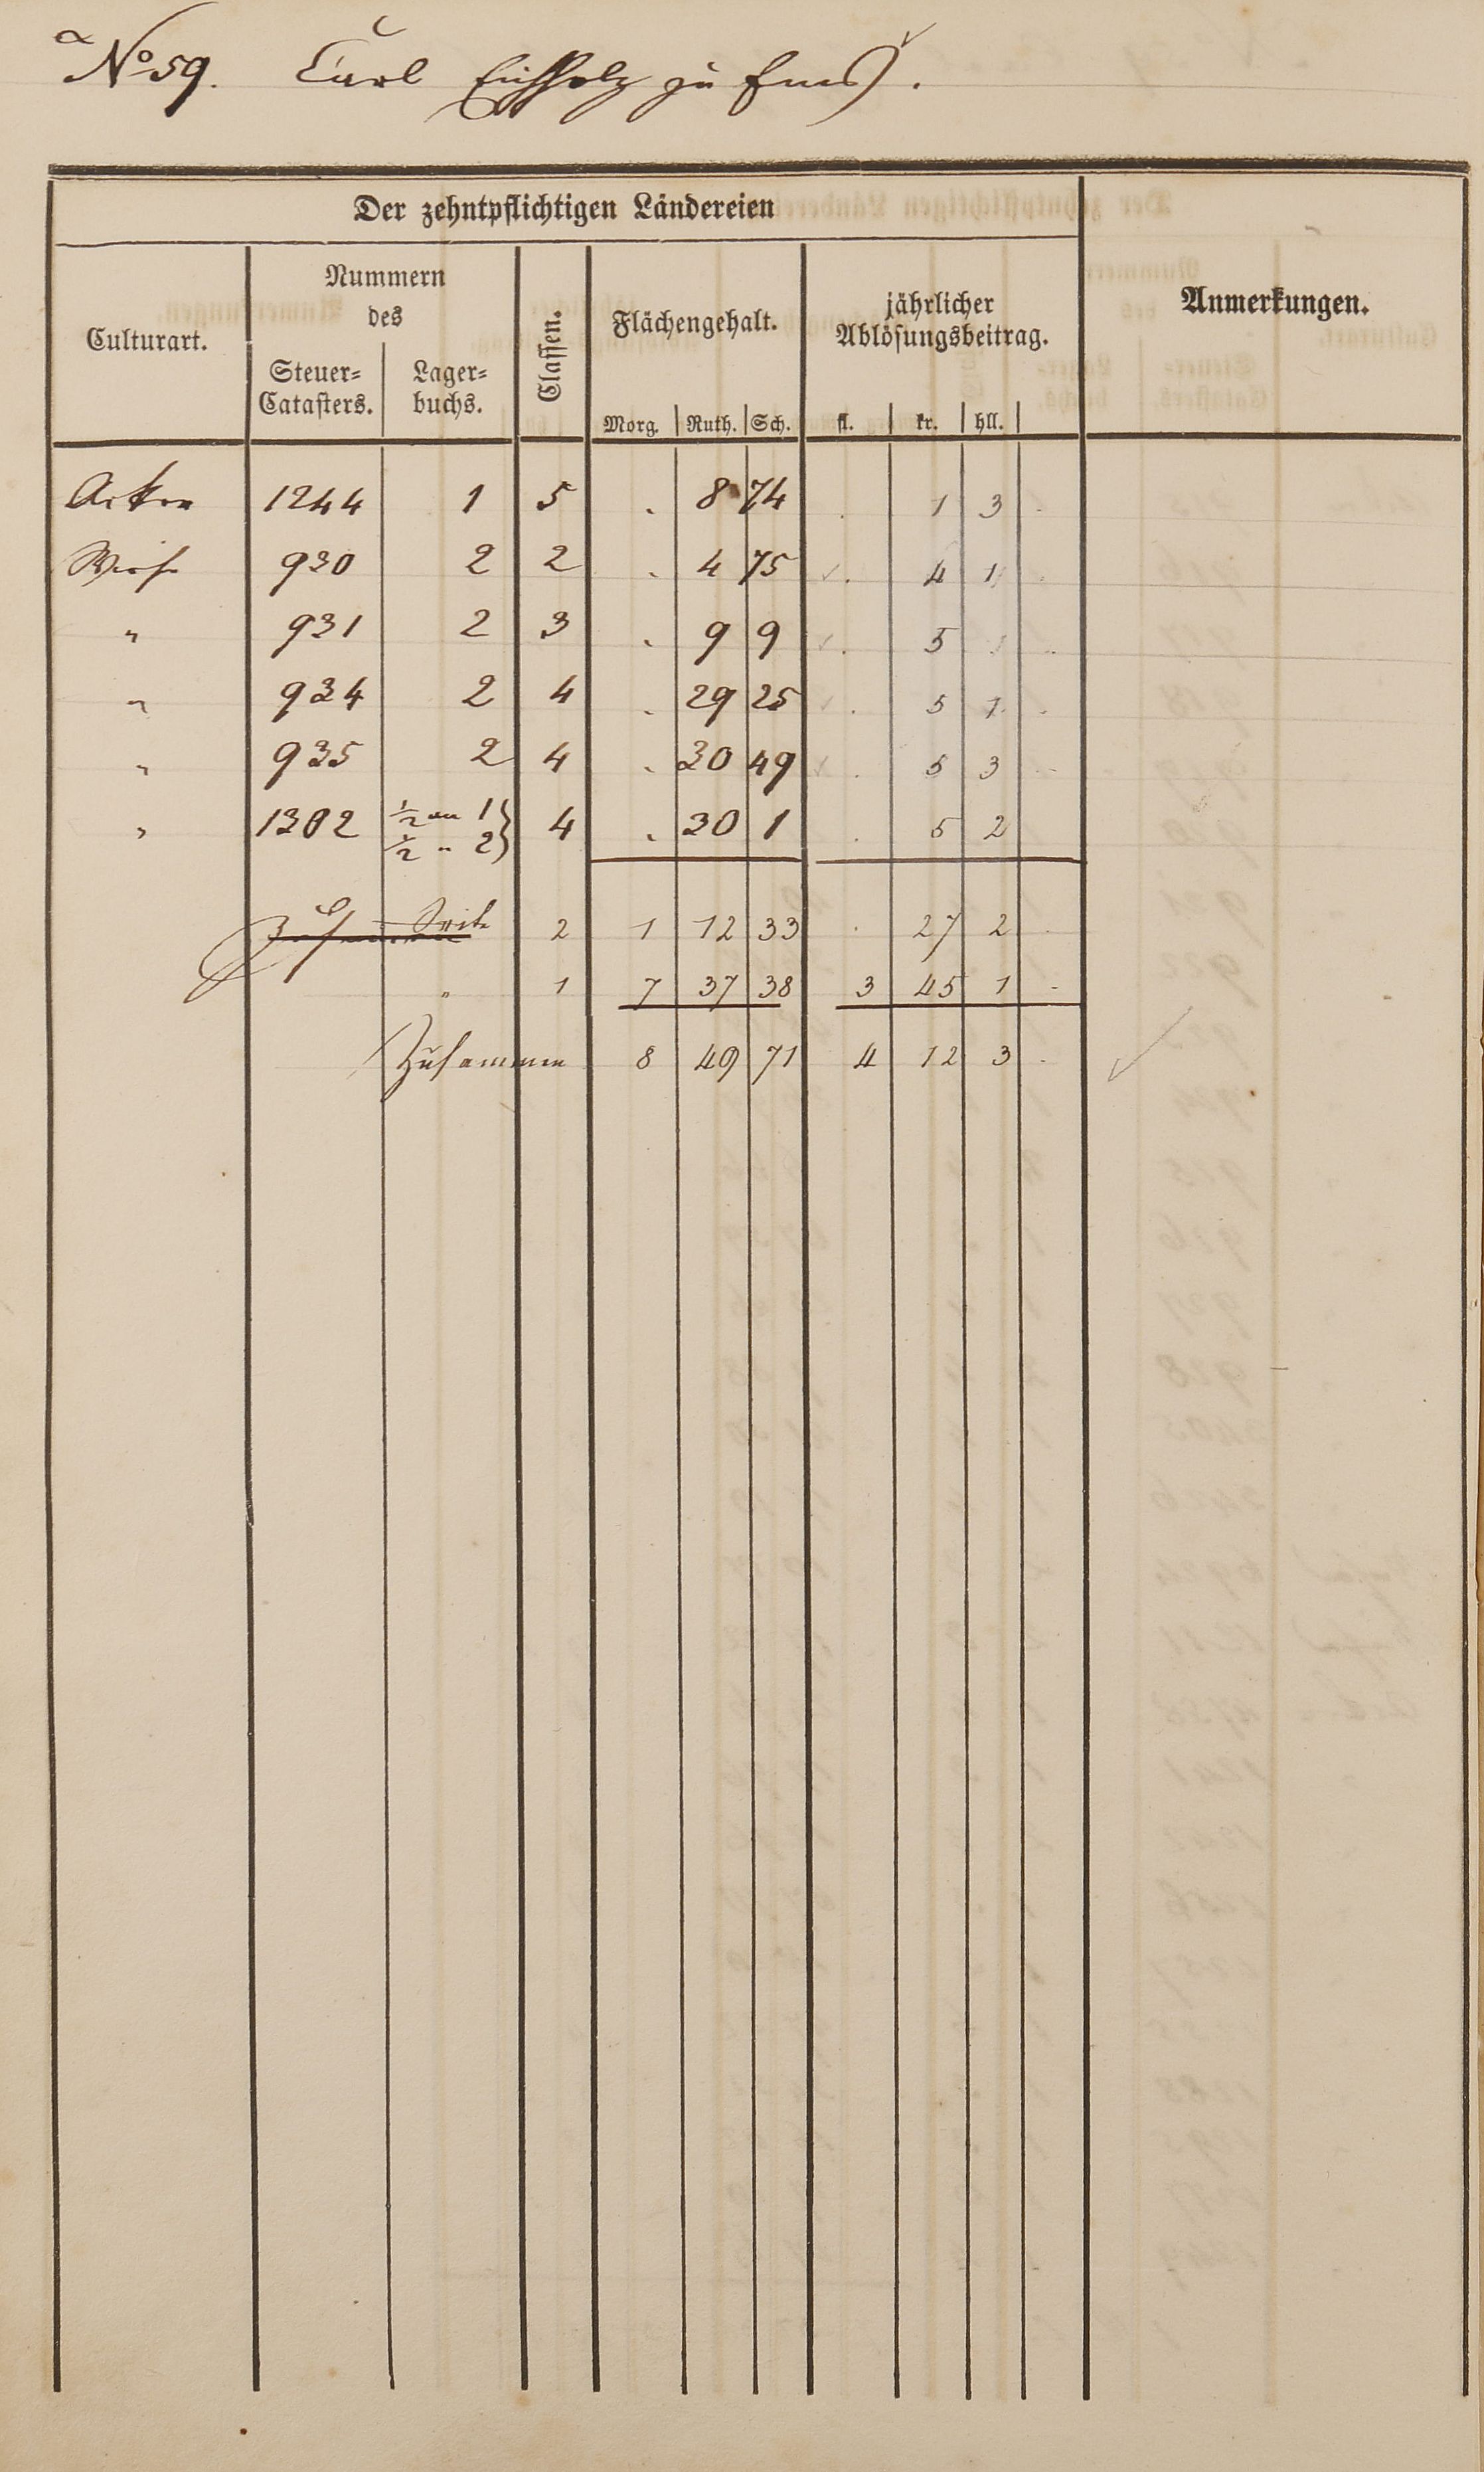 No 59. Carl Eichholz zu Ems.
Der zehntpflichtigen Ländereien
Culturart.
Nummern
des
Steuer-
Catasters.
Lager-
buchs.
Classen.
Flächengehalt.
Morg. Ruth. Sch.
jährlicher
Ablösungsbeitrag.
fl. kr. hll.
Anmerkungen.
Acker 1244 1 5 . 8 74 . 1 3
Wiese 930 2 2 . 4 75 . 4 1
" 931 2 3 . 9 9 . 5 .
" 934 2 4 . 29 25 . 5 1
" 935 2 4 . 30 49 . 5 3
" 1302 1/2 an 1 4 . 30 1 . 5 2
1/2 " 2
Seite 2 1 12 33 . 27 2
" 1 7 37 38 3 45 1
Zusammen 8 49 71 4 12 3